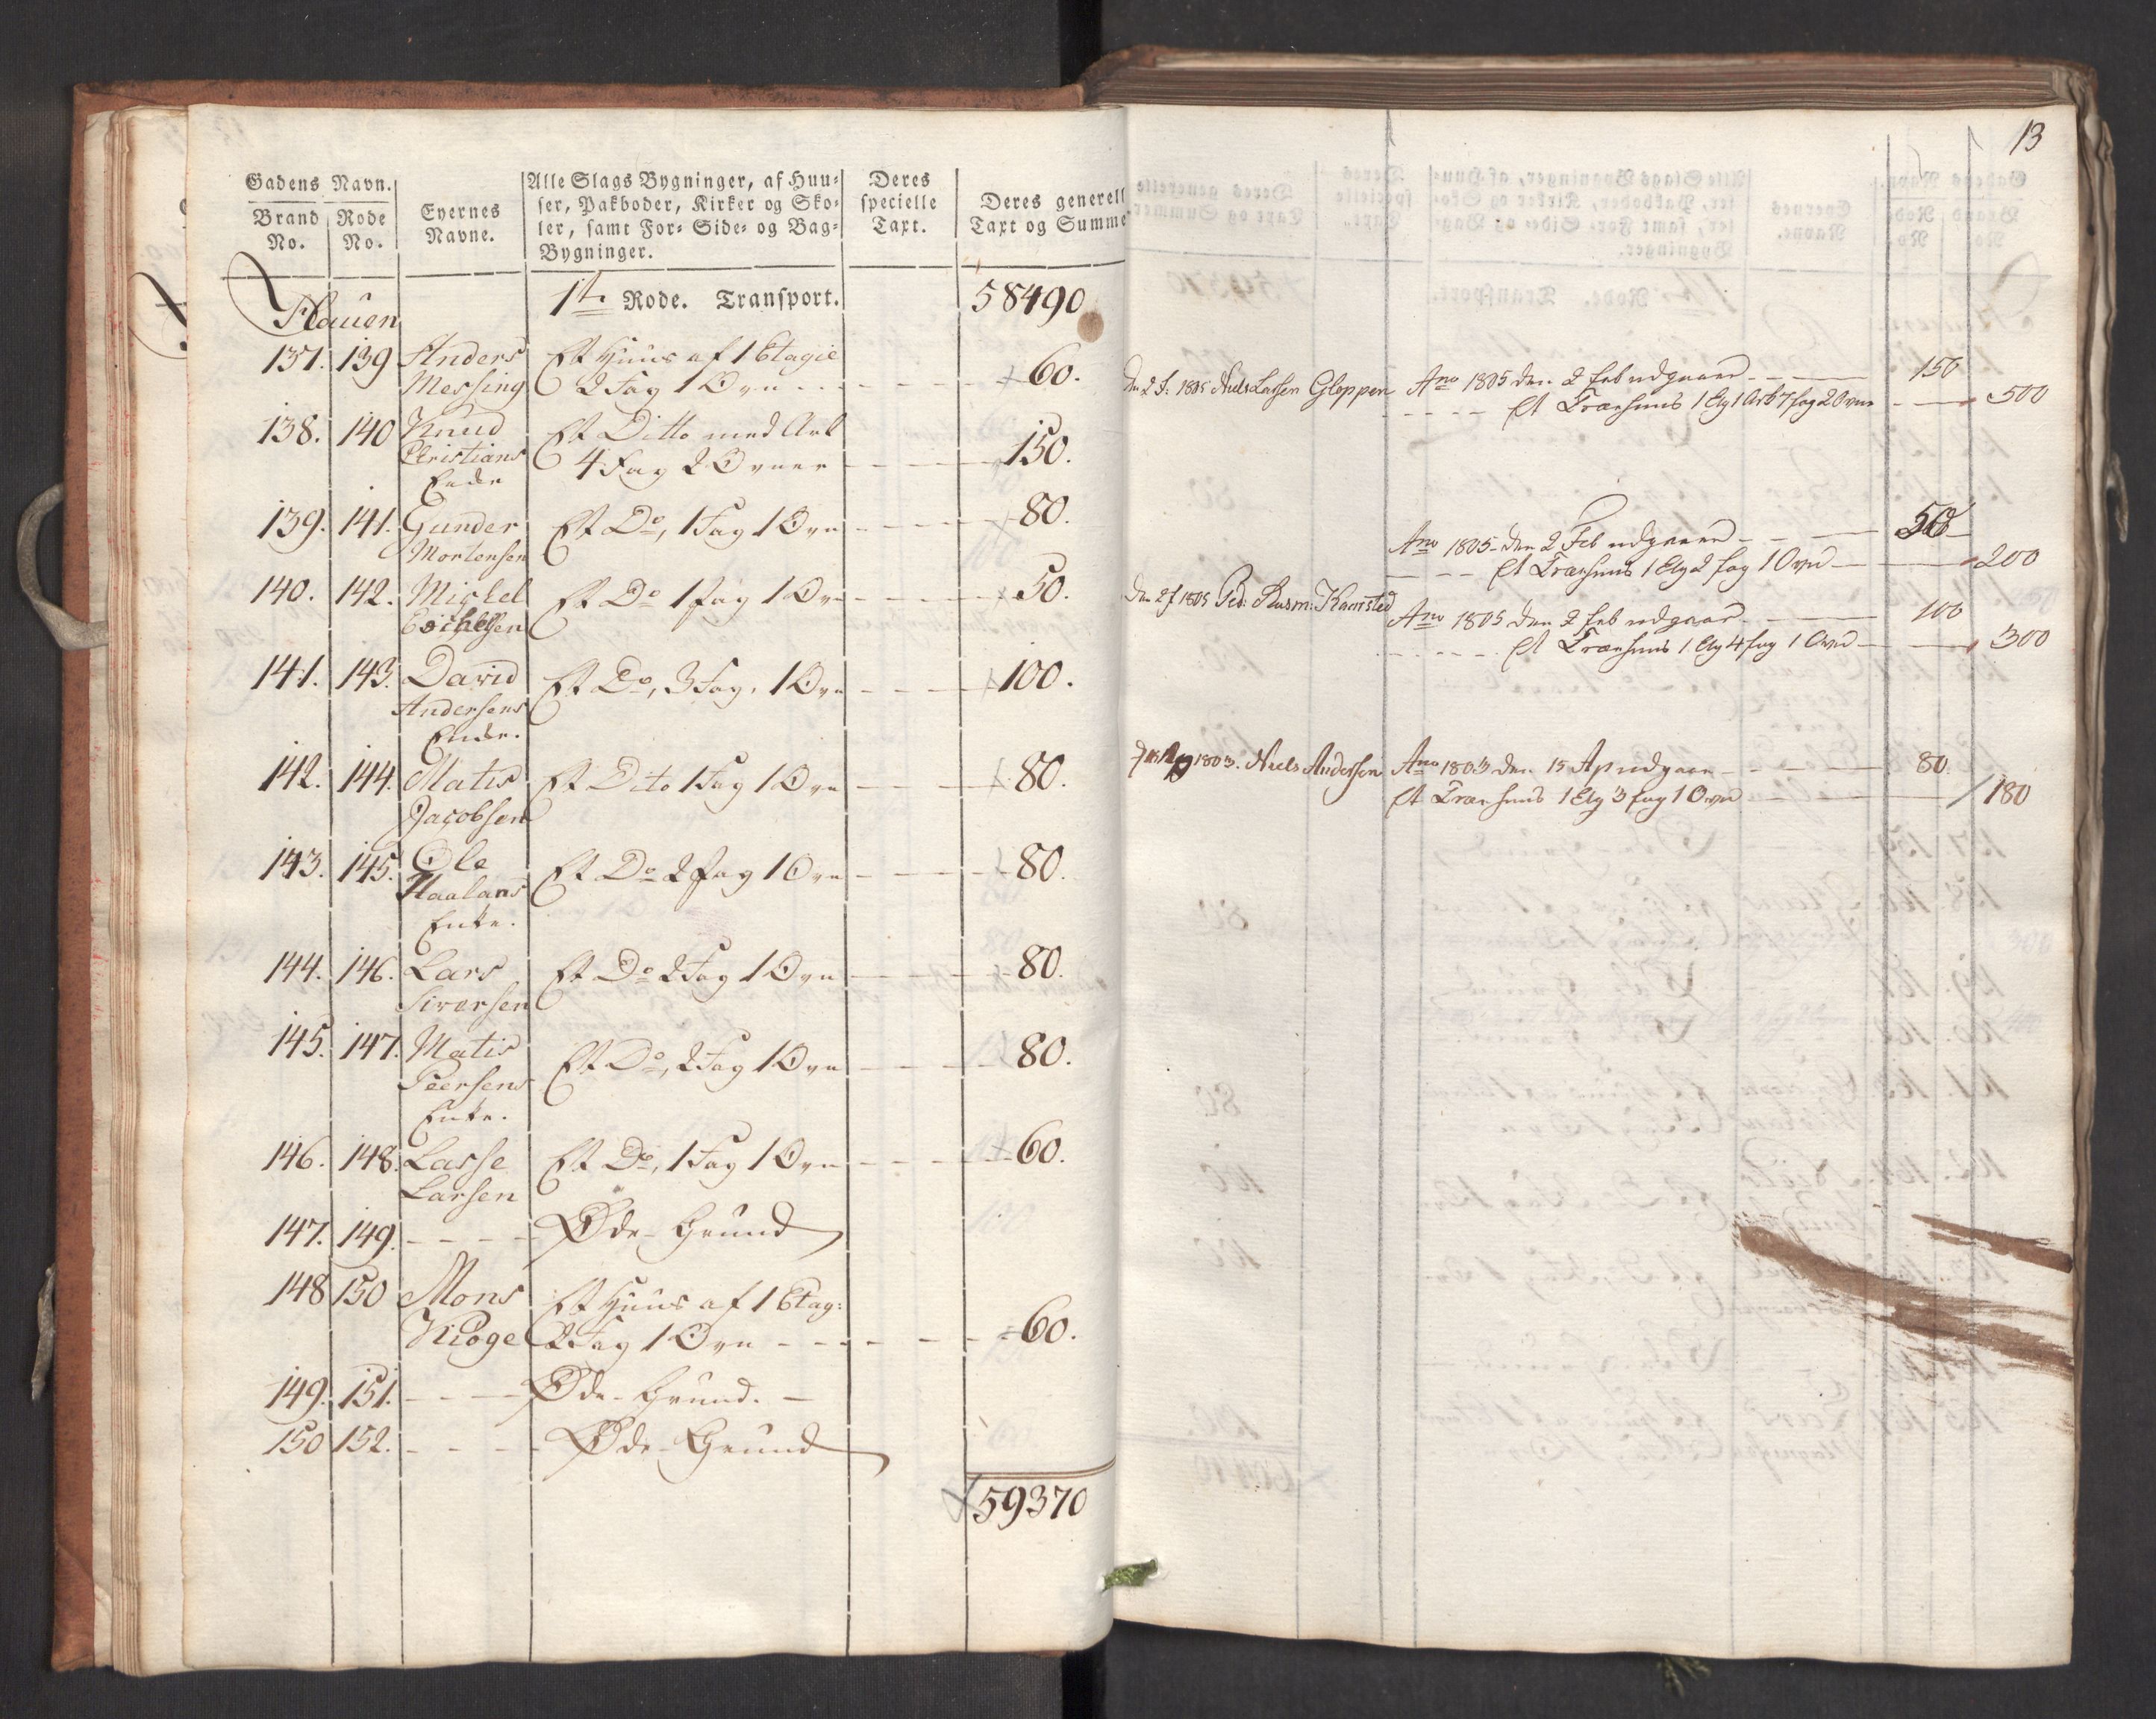 Gadens Navn.
Brand No.
Rode No.
Eyernes Navne.
Alle Slags Bygninger, af Huu-
ser, Pakboder, Kirker og Sko-
ler, samt For- Side- og Bag-
Bygninger.
Deres
specielle
Taxt.
Deres generell
Taxt og Summe
1te Rode. Transport. 58490
137. 139 Anders Et Huus af 1 Etagie
Messing 2 Fag 1 Ovn 60.
138. 140 Knud Et Ditto med Ark
Christians 4 Fag 2 Ovner 150.
Enke
139. 141. Gunder Et Do, 1 Fag 1 Ovn 80.
Mortensen
140. 142. Michel Et Do 1 fag 1 Ovn 50.
141. 143. David Et Do, 3 Fag, 1 Ovn 100.
Andersens
Enke.
142. 144. Matis Et Dito 1 Fag 1 Ovn 80.
Jacobsen
143. 145. Ole Et Do 2 Fag 1 Ovn 80.
Haalans
Enke.
144. 146. Lars Et Do 2 Fag 1 Ovn 80.
Siversen
145. 147. Matis Et Do, 2 Fag 1 Ovn 80.
Peersens
Enke.
146. 148. Lasse Et Do, 1 Fag 1 Ovn 60.
Larsen
147. 149. Øde-Grund
148 150 Mons Et Huus af 1 Etag:
2 Fag 1 Ovn 60.
149. 151. Øde-Grund.
150 152. Øde-Grund
59370
13
Den 2 F: 1805 Niels Lassen Gloppen Ano 1805 den 2 Feb udgaaer 150
Et Træehuus 1 Etg 1 Ark 7 fag 2 Ovne 500
Ano 1805 den 2 Feb udgaaer 50
Et Træehuus 1 Etg 2 fag 1 Ovn 200
Den 2 f 1805 Ped: Rasm: Kamsted
Ano 1805 den 2 Feb udgaaer 100
Et Træehuus 1 Etg 4 fag 1 Ovn 300
15 Ap 1803. Niels Andersen Ano 1803 den 15 Ap udgaaer 80.
Et Træehuus 1 Etg 3 fag 1 Ovn 180